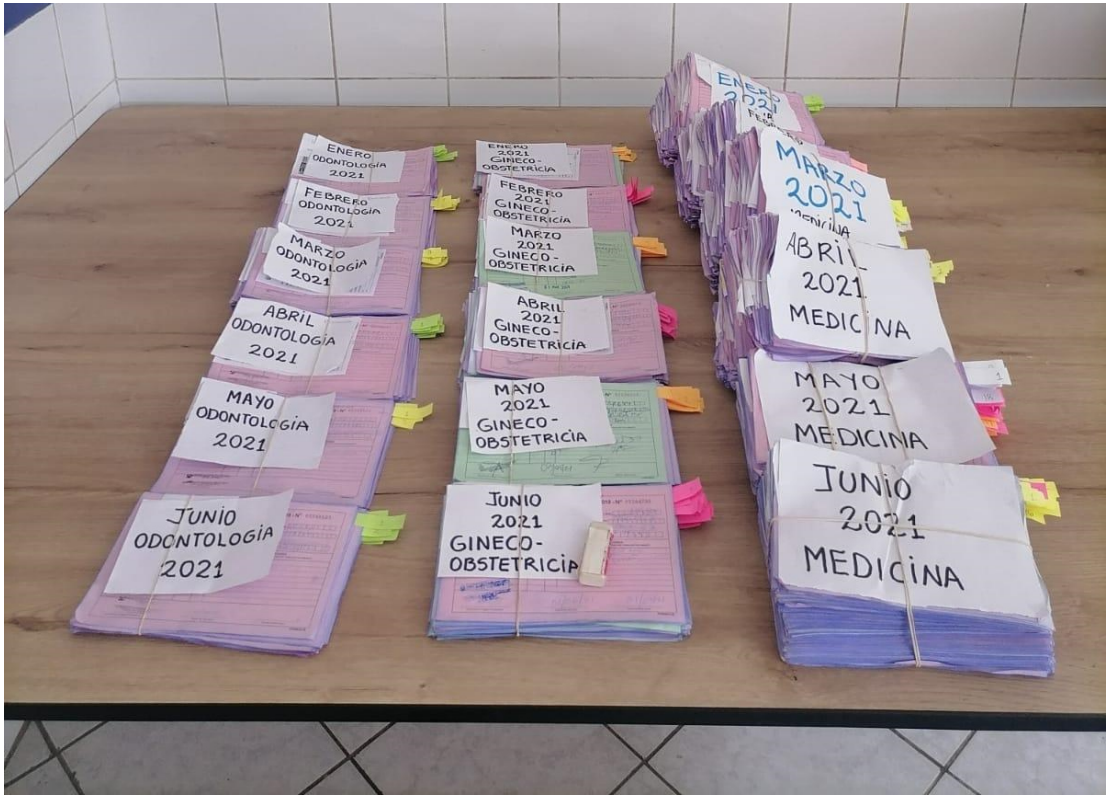 ENERO
ODONTOLOGÍA
2021
FEBRERO
ODONTOLOGÍA
2021
MARZO
ODONTOLOGÍA
2021
ABRIL
ODONTOLOGÍA
2021
MAYO
ODONTOLOGÍA
2021
JUNIO
ODONTOLOGÍA
2021
ENERO
2021
GINECO-
OBSTETRICIA
FEBRERO
2021
GINECO-
OBSTETRICIA
MARZO
2021
GINECO-
OBSTETRICIA
ABRIL
2021
GINECO-
OBSTETRICIA
MAYO
2021
GINECO-
OBSTETRICIA
JUNIO
2021
GINECO-
OBSTETRICIA
ENERO
2021
FEBRERO
MARZO
2021
MEDICINA
ABRIL
2021
MEDICINA
MAYO
2021
MEDICINA
JUNIO
2021
MEDICINA